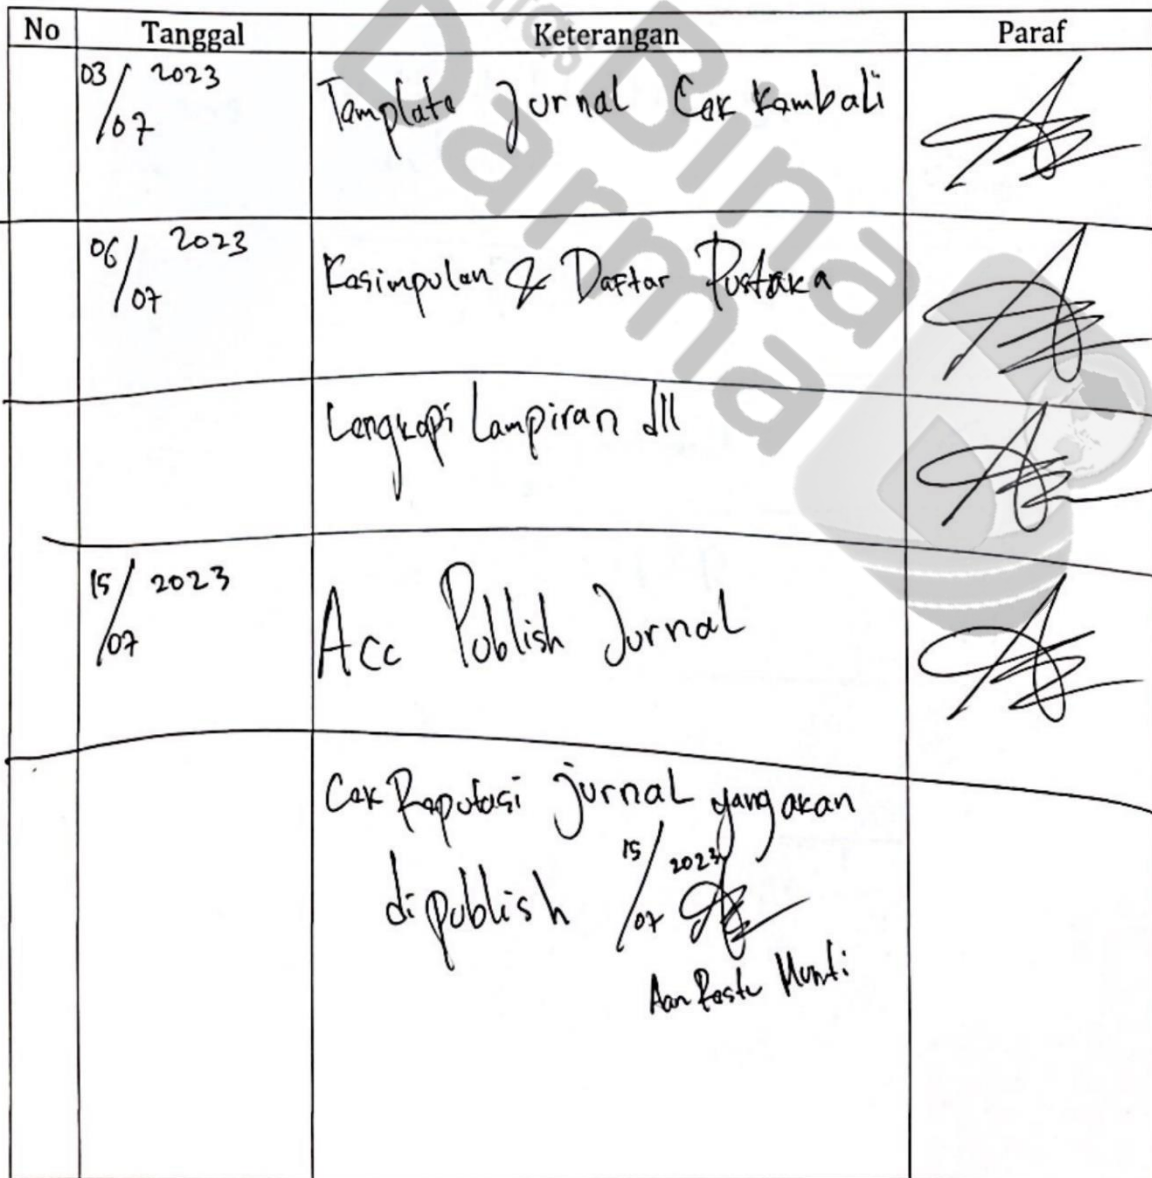 No Tanggal Keterangan Paraf
03/07 2023 Template Jurnal Cek Kembali
06/07 2023 Kesimpulan & Daftar Pustaka
Lengkapi Lampiran dll
15/07 2023 Acc Publish Jurnal
Cek Reputasi jurnal yang akan
dipublish 15/07 2023
Aan Restu
Bina
Darma